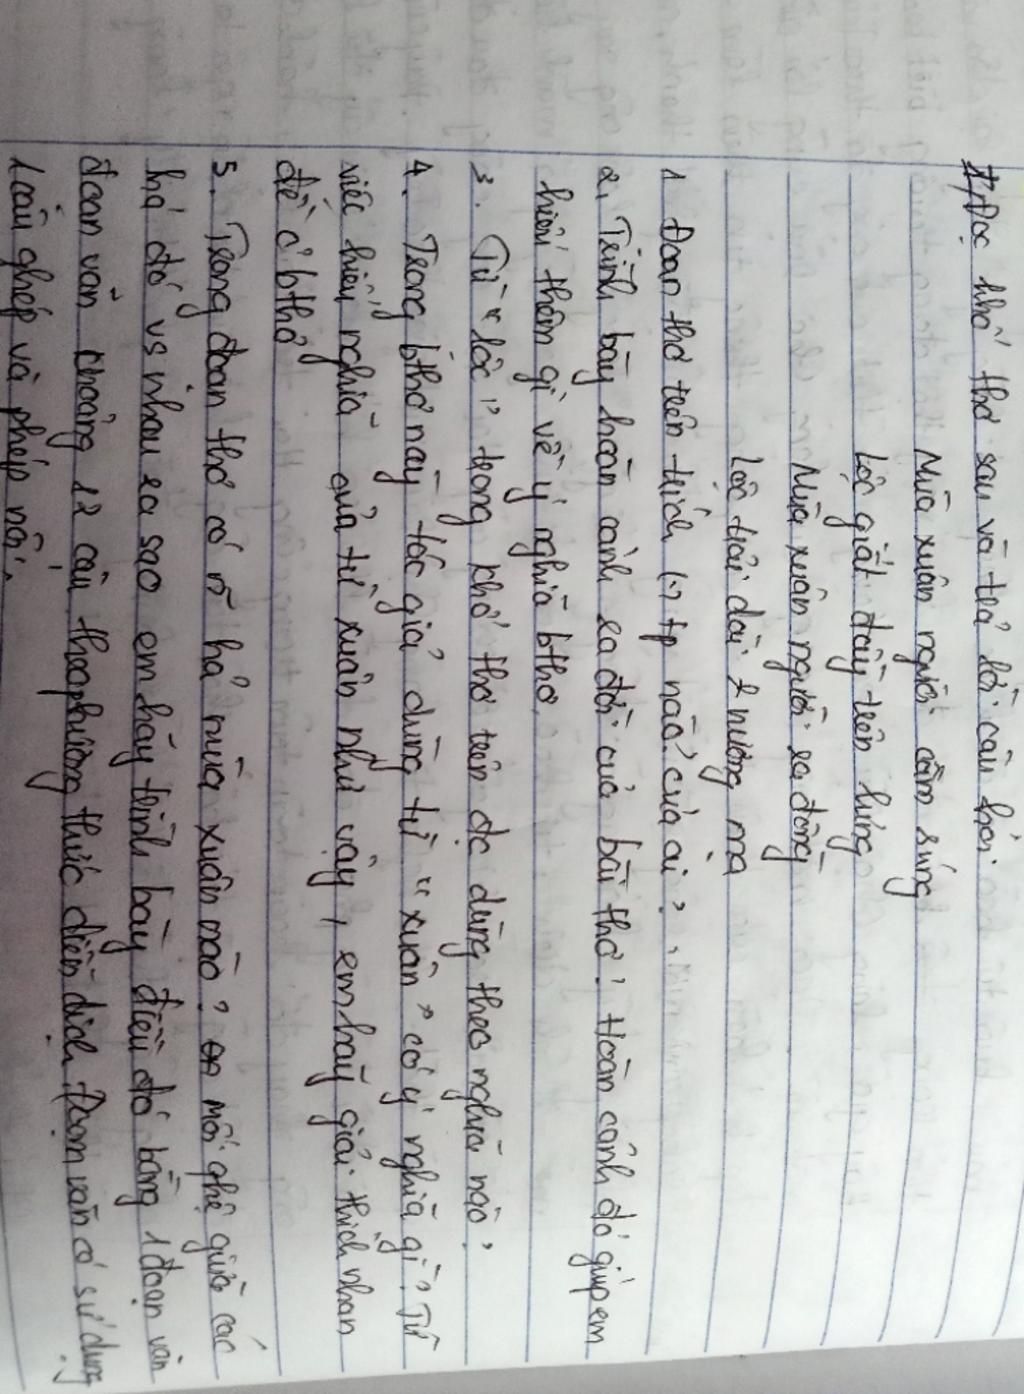 II, Đọc khổ thơ sau và trả lời câu hỏi.
Mùa xuân người cầm súng
Lộc giắt đầy trên lưng
Mùa xuân người ra đồng
Lộc trải dài 2 nương mạ
1 Đoạn thơ trên trích (-) tp nào? của ai?
2, Trình bày hoàn cảnh ra đời của bài thơ? Hoàn cảnh đó giúp em
hiểu thêm gì về ý nghĩa bthơ.
3. Từ "lộc" trong khổ thơ trên đc dùng theo nghĩa nào?
4. Trong bthơ này tác giả dùng từ "xuân" có ý nghĩa gì? Từ
việc hiểu nghĩa của từ xuân như vậy, em hãy giải thích nhan
đề ở bthơ
5. Trong đoạn thơ có n~ h/a mùa xuân nào? mối qhệ giữa các
h/a đó vs nhau ra sao em hãy trình bày điều đó bằng 1 đoạn văn
đoạn văn khoảng 12 câu theo phương thức diễn dịch. Đoạn văn có sử dụng
1 câu ghép và phép nối.